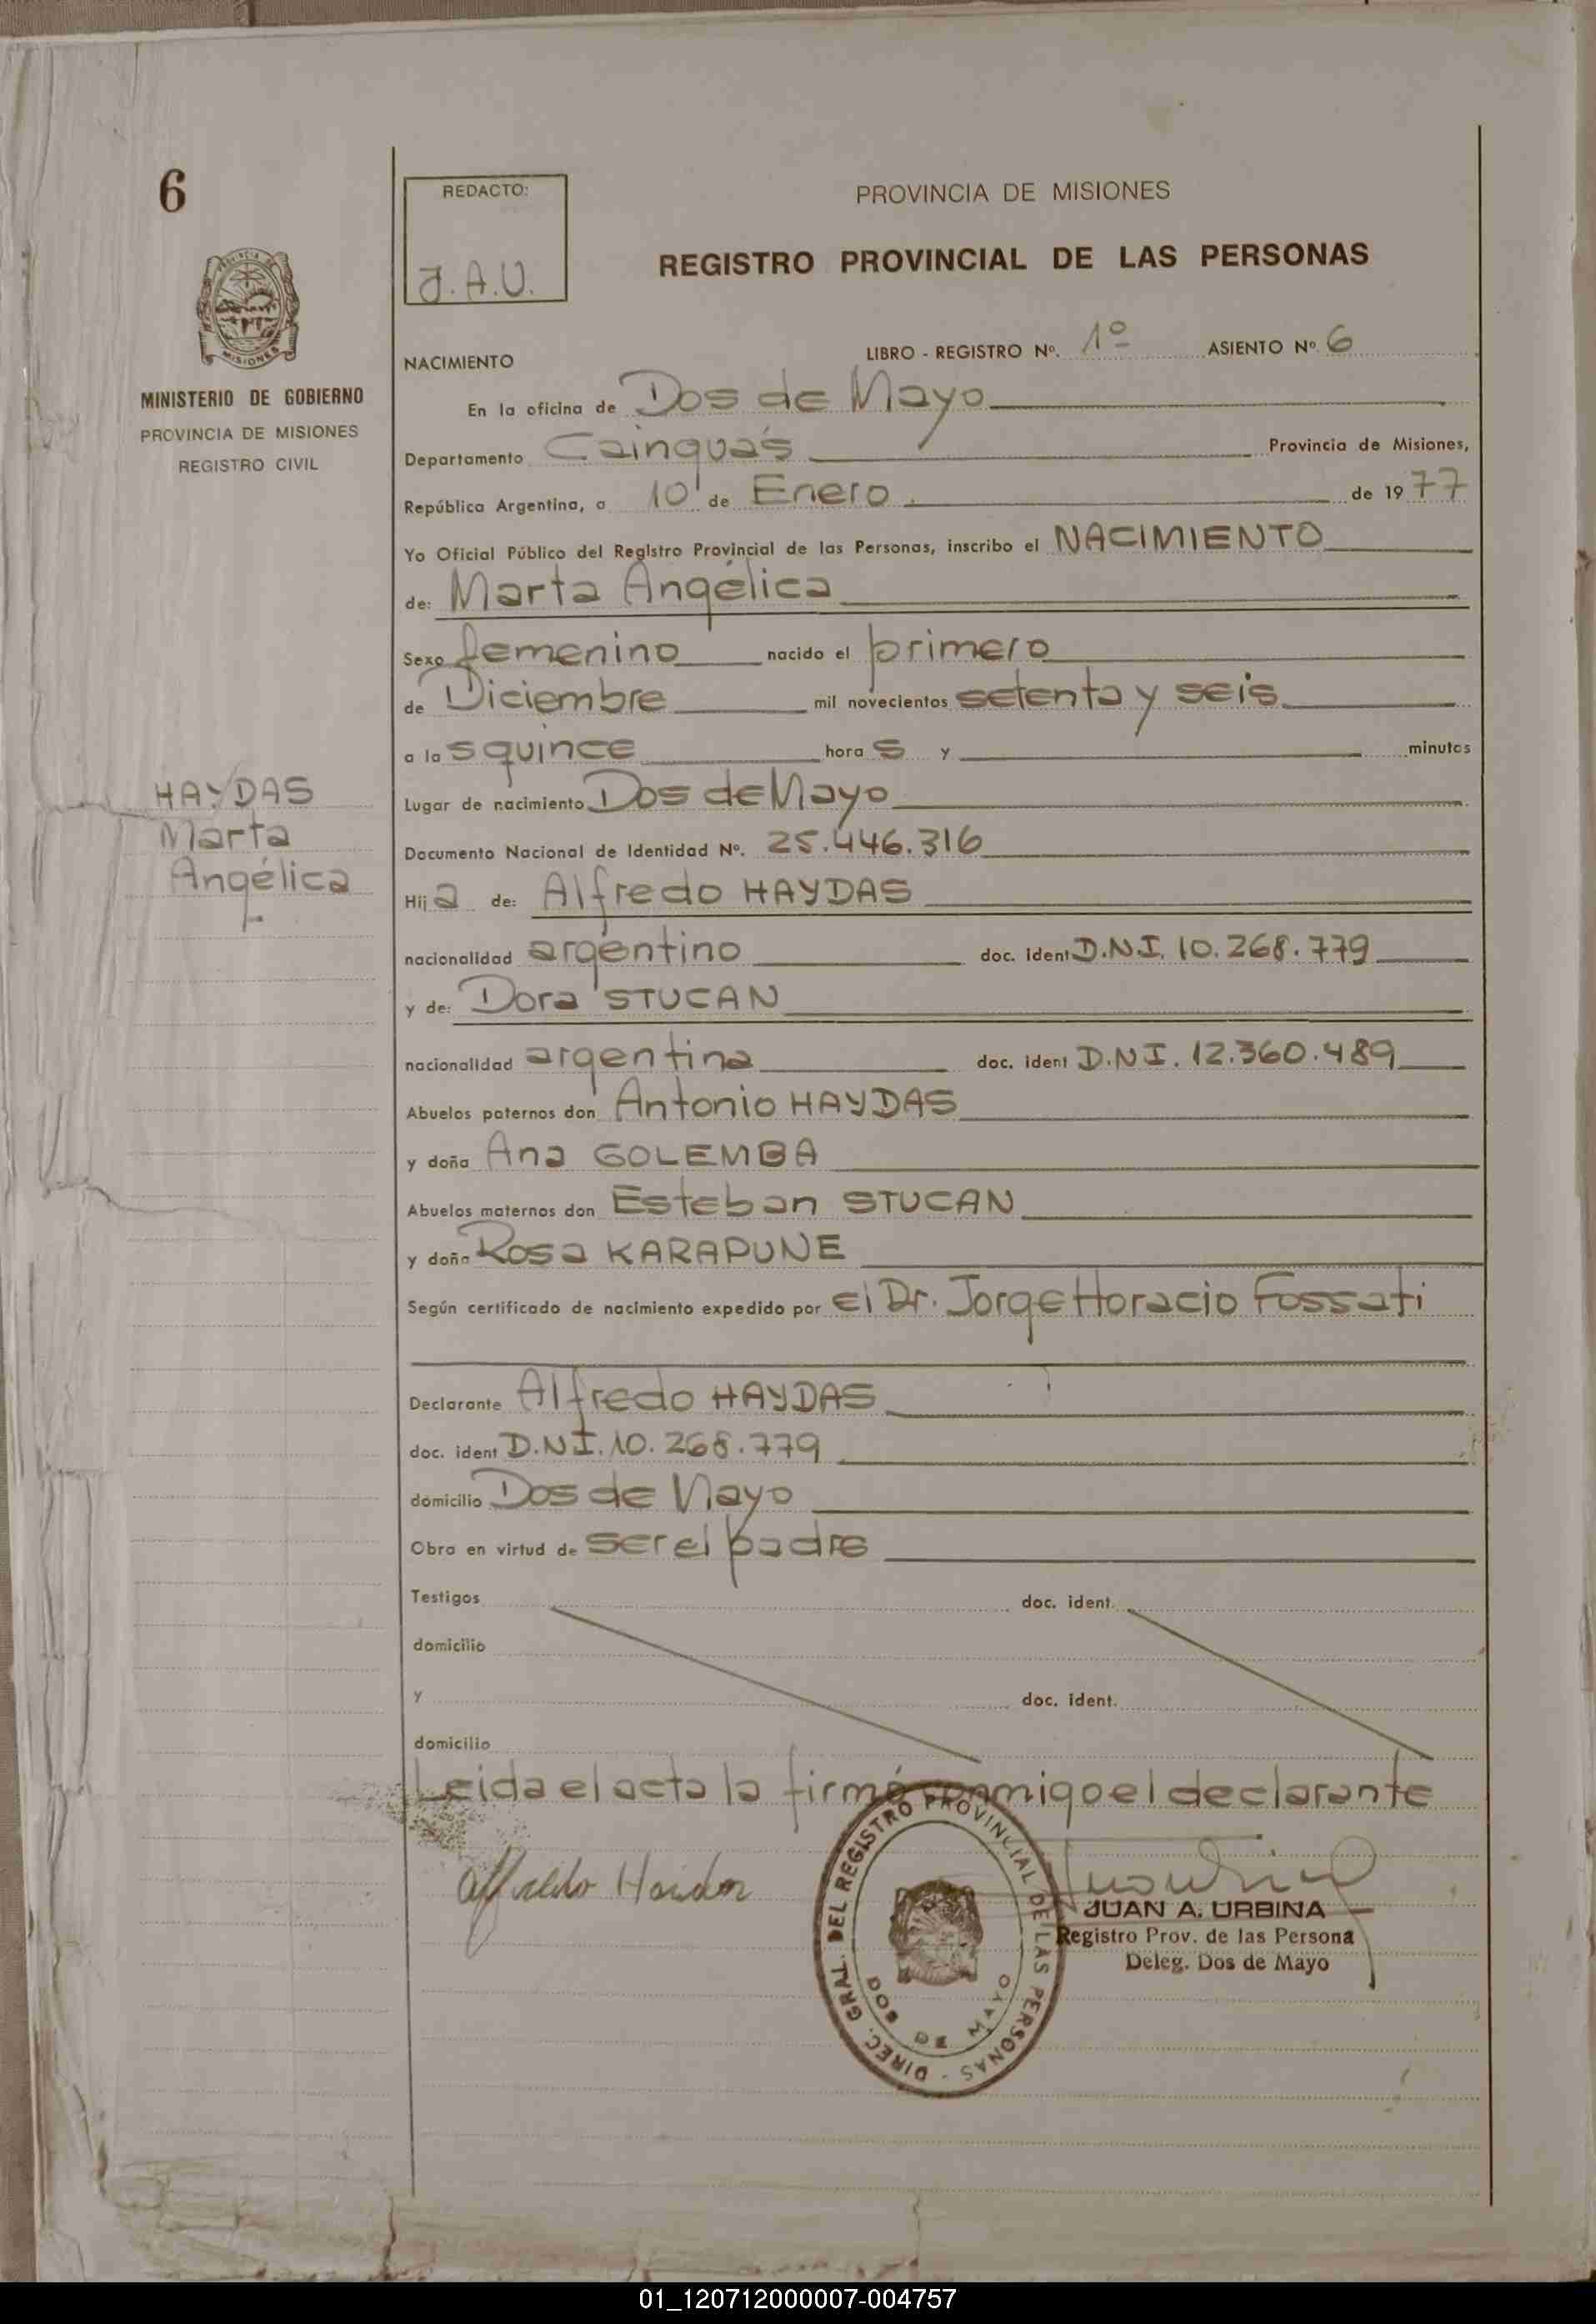 6
MINISTERIO DE GOBIERNO
PROVINCIA DE MISIONES
REGISTRO CIVIL
HAYDAS
Marta
Angélica
REDACTO:
J.A.U.
PROVINCIA DE MISIONES
REGISTRO PROVINCIAL DE LAS PERSONAS
NACIMIENTO LIBRO - REGISTRO Nº. 1º ASIENTO Nº. 6
En la oficina de Dos de Mayo
Departamento Cainguás Provincia de Misiones,
República Argentina, a 10 de Enero de 1977
Yo Oficial Público del Registro Provincial de las Personas, inscribo el NACIMIENTO
de: Marta Angélica
Sexo femenino nacido el primero
de Diciembre mil novecientos setenta y seis
a las quince horas y minutos
Lugar de nacimiento Dos de Mayo
Documento Nacional de Identidad Nº. 25.446.316
Hija de: Alfredo HAYDAS
nacionalidad argentino doc. ident D.N.I. 10.268.779
y de: Dora STUCAN
nacionalidad argentina doc. ident D.N.I. 12.360.489
Abuelos paternos don Antonio HAYDAS
y doña Ana GOLEMBA
Abuelos maternos don Esteban STUCAN
y doña Rosa KARAPUNE
Según certificado de nacimiento expedido por el Dr. Jorge Horacio Fossati
Declarante Alfredo HAYDAS
doc. ident D.N.I. 10.268.779
domicilio Dos de Mayo
Obra en virtud de ser el padre
Testigos doc. ident.
domicilio
y doc. ident.
domicilio
Leida el acta la firmó conmigo el declarante
DIREC. GRAL. DEL REGISTRO PROVINCIAL DE LAS PERSONAS -
DOS DE MAYO
JUAN A. URBINA
Registro Prov. de las Persona
Deleg. Dos de Mayo
01_120712000007-004757